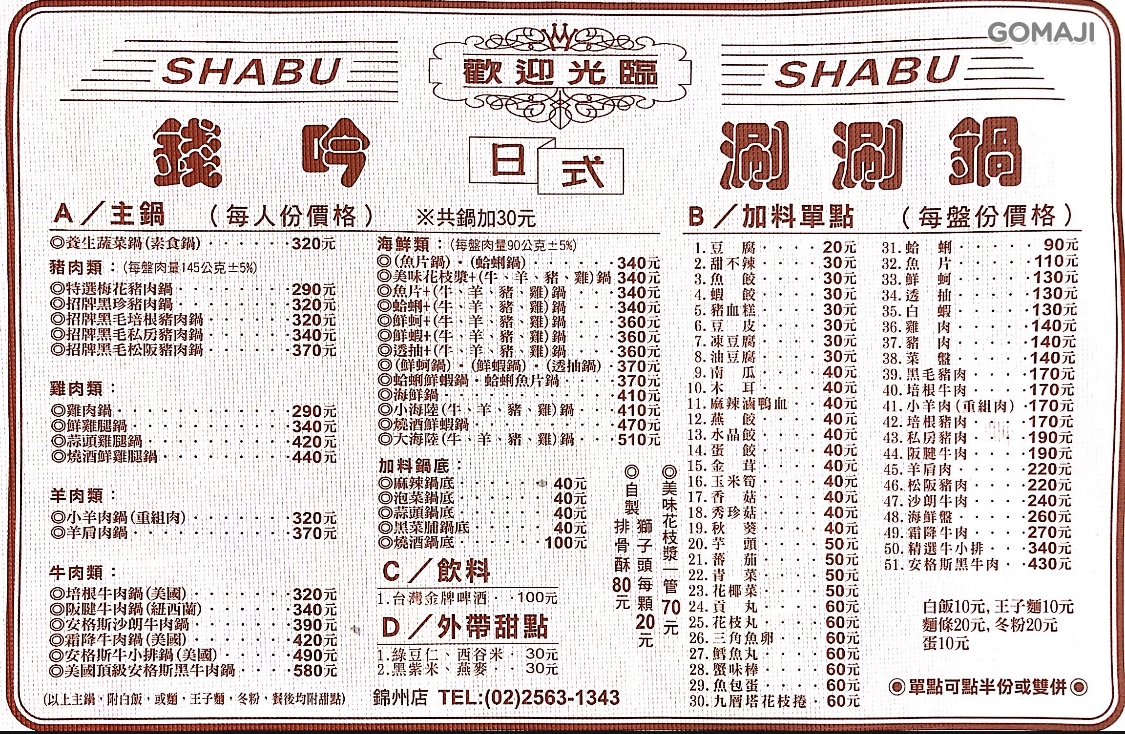 GOMAJI
SHABU 歡迎光臨 SHABU
錢吟 日式 涮涮鍋
A／主鍋 （每人份價格） ※共鍋加30元
◎養生蔬菜鍋(素食鍋)······320元
豬肉類：(每盤肉量145公克±5%)
◎特選梅花豬肉鍋········290元
◎招牌黑珍豬肉鍋········320元
◎招牌黑毛培根豬肉鍋······320元
◎招牌黑毛私房豬肉鍋······340元
◎招牌黑毛松阪豬肉鍋······370元
雞肉類：
◎雞肉鍋············290元
◎鮮雞腿鍋···········340元
◎蒜頭雞腿鍋··········420元
◎燒酒鮮雞腿鍋·········440元
羊肉類：
◎小羊肉鍋(重組肉)·······320元
◎羊肩肉鍋···········370元
牛肉類：
◎培根牛肉鍋(美國)·······320元
◎阪腱牛肉鍋(紐西蘭)······340元
◎安格斯沙朗牛肉鍋·······390元
◎霜降牛肉鍋(美國)·······420元
◎安格斯牛小排鍋(美國)·····490元
◎美國頂級安格斯黑牛肉鍋····580元
(以上主鍋，附白飯，或麵、王子麵、冬粉，餐後均附甜點)
海鮮類：(每盤肉量90公克±5%)
◎(魚片鍋)·(蛤蜊鍋)······340元
◎美味花枝漿+(牛、羊、豬、雞)鍋 340元
◎魚片+(牛、羊、豬、雞)鍋···340元
◎蛤蜊+(牛、羊、豬、雞)鍋···340元
◎鮮蚵+(牛、羊、豬、雞)鍋···360元
◎鮮蝦+(牛、羊、豬、雞)鍋···360元
◎透抽+(牛、羊、豬、雞)鍋···360元
◎(鮮蚵鍋)·(鮮蝦鍋)·(透抽鍋)·370元
◎蛤蜊鮮蝦鍋·蛤蜊魚片鍋····370元
◎海鮮鍋············410元
◎小海陸(牛、羊、豬、雞)鍋···410元
◎燒酒鮮蝦鍋··········470元
◎大海陸(牛、羊、豬、雞)鍋···510元
加料鍋底：
◎麻辣鍋底······40元
◎泡菜鍋底······40元
◎蒜頭鍋底······40元
◎黑菜脯鍋底·····40元
◎燒酒鍋底······100元
◎自製排骨酥80元
獅子頭每顆20元
◎美味花枝漿一管70元
C／飲料
1.台灣金牌啤酒··100元
D／外帶甜點
1.綠豆仁、西谷米·30元
2.黑紫米、燕麥··30元
錦州店 TEL:(02)2563-1343
B／加料單點 （每盤份價格）
1.豆腐····20元
2.甜不辣····30元
3.魚餃····30元
4.蝦餃····30元
5.豬血糕····30元
6.豆皮····30元
7.凍豆腐····30元
8.油豆腐····30元
9.南瓜····40元
10.木耳····40元
11.麻辣滷鴨血··40元
12.燕餃····40元
13.水晶餃····40元
14.蛋餃····40元
15.金茸····40元
16.玉米筍····40元
17.香菇····40元
18.秀珍菇····40元
19.秋葵····40元
20.芋頭····50元
21.蕃茄····50元
22.青菜····50元
23.花椰菜····50元
24.貢丸····60元
25.花枝丸····60元
26.三角魚卵···60元
27.鱈魚丸····60元
28.蟹味棒····60元
29.魚包蛋····60元
30.九層塔花枝捲·60元
31.蛤蜊····90元
32.魚片····110元
33.鮮蚵····130元
34.透抽····130元
35.白蝦····130元
36.雞肉····140元
37.豬肉····140元
38.菜盤····140元
39.黑毛豬肉····170元
40.培根牛肉····170元
41.小羊肉(重組肉)·170元
42.培根豬肉····170元
43.私房豬肉····190元
44.阪腱牛肉····190元
45.羊肩肉····220元
46.松阪豬肉····220元
47.沙朗牛肉····240元
48.海鮮盤····260元
49.霜降牛肉····270元
50.精選牛小排···340元
51.安格斯黑牛肉··430元
白飯10元,王子麵10元
麵條20元,冬粉20元
蛋10元
◉單點可點半份或雙併◉